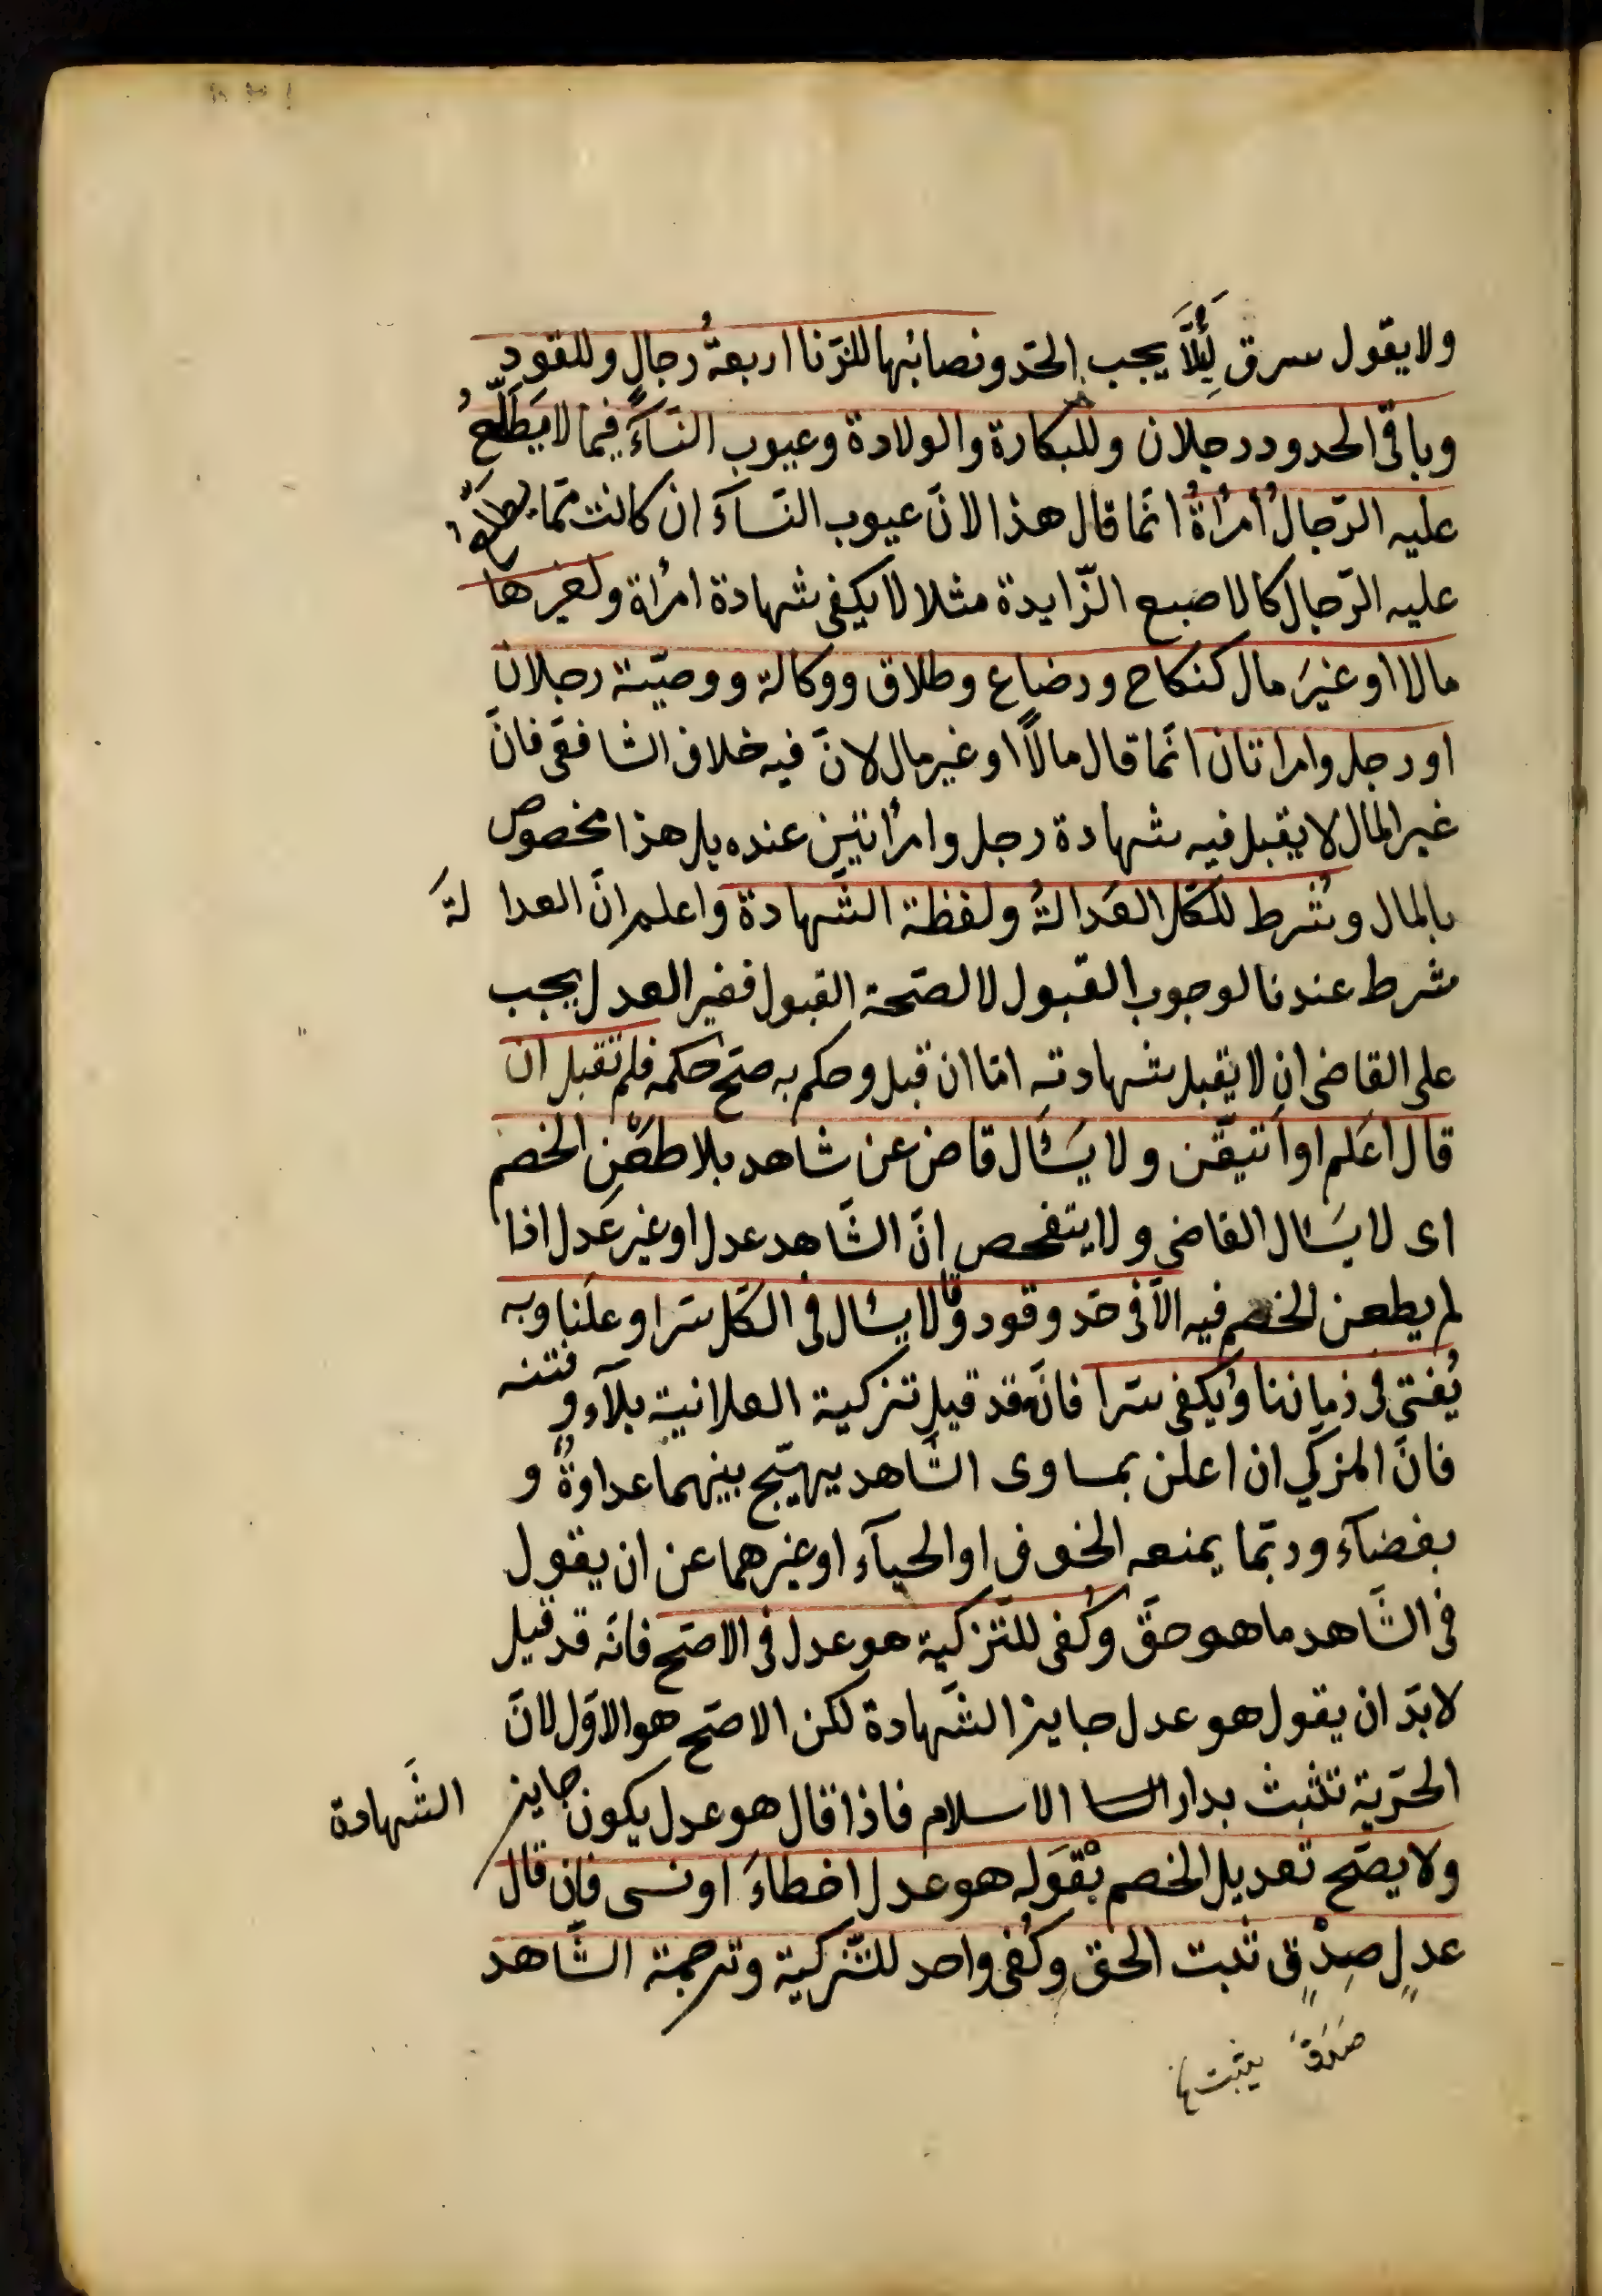 ولا يقول سرق لِئَلَّا يجب الحدّ ونصابُها للزّنا اربعةُ رجالٍ وللقودِ
وباقى الحدود رجلان وللبكارة والولادة وعيوب النّسآءِ فيما لا يَطَّلِعُ
عليه الرّجالُ امرُأةٌ انّما قال هذا لانّ عيوب النّسآءَ ان كانت ممّا يطّلع
عليه الرّجال كالاصبع الزّايدة مثلا لا يكفى شهادة امرأة ولغيرها
مالا او غيرَ مال كنكاح ورضاع وطلاق ووكالة ووصيّة رجلان
او رجل وامراتان انّما قال مالًا او غير مال لانّ فيه خلاف الشافعّى فانّ
غير المال لا يقبل فيه شهادة رجل وامرأتين عنده بل هذا مخصوص
بالمال وشُرط للكلّ العَدالةُ ولفظة الشّهادة واعلم انّ العدا لةَ
شرط عندنا لوجوب القبول لا لصّحة القبول فغير العدل يجب
على القاضى ان لا يقبل شهادته امّا ان قبل وحكم به صحّ حكمه فلم تقبل ان
قال اعَلم او اَتيقّن ولا يَسْأل قاض عن شاهد بلا طعْنِ الخصم
اى لا يسَأل القاضى ولا يتفحص انّ الشّاهد عدل او غير عَدل اذا
لم يطعن الخصم فيه الّا فى حدّ وقود وقالا يسأل فى الكلّ سّرا وعلَنا وبه
يُفتى فى زماننا ويُكفى سرّا فانّه قد قيل تزكية العلانية بلآء وفتنه
فانّ المزكّي ان اعلن بمساوى الشّاهد يهيّج بينهما عداوةٌ و
بغضآء وربّما يمنعه الخوف او الحيآء او غيرهما عن ان يقول
فى الشّاهد ما هو حقّ وكُفى للتّزكية هو عدل فى الاصّح فانّه قد قيل
لا بدّ ان يقول هو عدل جايز الشّهادة لكن الاصّح هو الاوّل لانّ
الحرّية تثبت بدار السا الاسلام فاذا قال هو عدل يكون جايز الشّهادة
ولا يصّح تعديل الخصم بْقَوله هو عدل اخطاءَ او نسى فاِن قال
عدلٍ صِدْقٍ ثبت الحق وكُفى واحد للتّزكية وترجمة الشّاهد
صَدَقَ يثبت